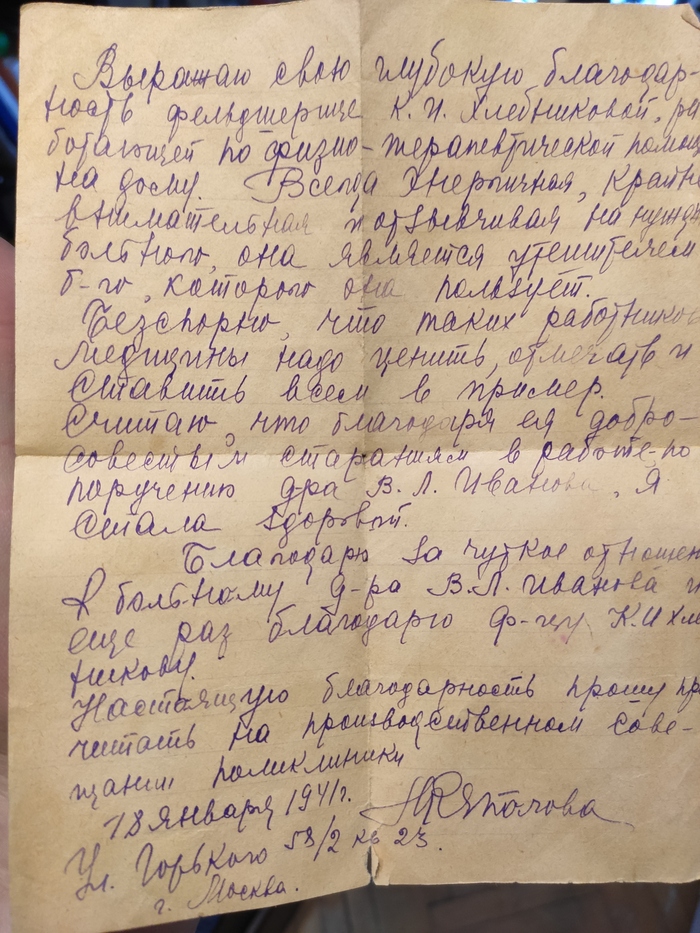 Выражаю свою глубокую благодар-
ность фельдшерице К. И. Хлебниковой, ра
ботающей по физио-терапевтической помощи
на дому. Всегда энергичная, крайне
внимательная и отзывчивая на нужды
больного, она является утешителем
б-го, которого она пользует.
Безспорно, что таких работников
медицины надо ценить, отмечать и
ставить всем в пример.
Считаю, что благодаря ея добро-
совестным стараниям в работе по
поручению дра В. Л. Иванова, я
стала здоровой.
Благодарю за чуткое отношен
к больному д-ра В. Л. Иванова и
еще раз благодарю ф-цу К. И Хле
никову.
Настоящую благодарность прошу пр
читать на производственном сове-
щании поликлиники
18 января 1941 г.
Ул. Горького 58/2 кв 23.
г. Москва.